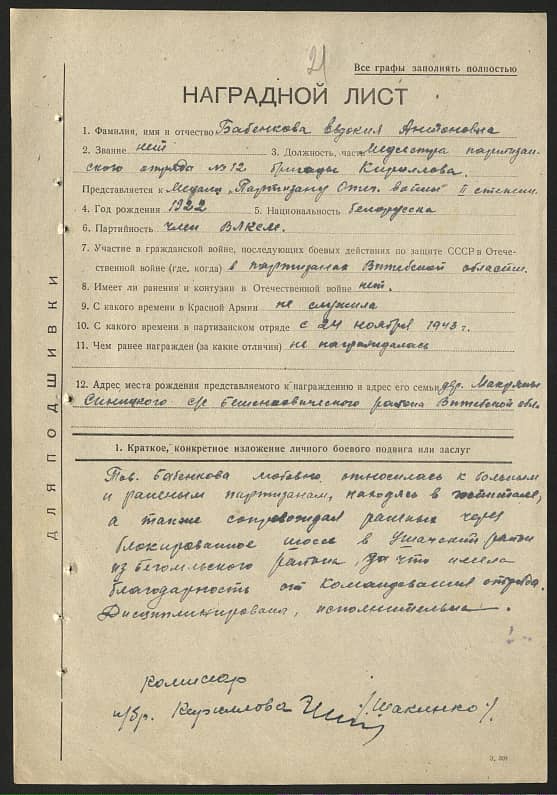 21
Все графы заполнять полностью
НАГРАДНОЙ ЛИСТ
1. Фамилия, имя и отчество Бабенкова Евдокия Антоновна
2. Звание нет 3. Должность, часть Медсестра партизан-
ского отряда №12 бригады Кириллова.
Представляется к Медали "Партизану Отеч. войны" II степени.
4. Год рождения 1922 5. Национальность белорусска
6. Партийность член ВЛКСМ.
7. Участие в гражданской войне, последующих боевых действиях по защите СССР в Отече-
ственной войне (где, когда) в партизанах Витебской области.
8. Имеет ли ранения и контузии в Отечественной войне нет.
9. С какого времени в Красной Армии не служила
10. С какого времени в партизанском отряде с 24 ноября 1943 г.
11. Чем ранее награжден (за какие отличия) не награждалась
12. Адрес места рождения представляемого к награждению и адрес его семьи дер.
Синицкого с/с Бешенковического района Витебской обл.
1. Краткое, конкретное изложение личного боевого подвига или заслуг
Тов. Бабенкова любовно относилась к больным
и раненым партизанам, находясь в
а также сопровождая раненых через
блокированное шоссе в Ушачский район
из Бегомльского района, за что имела
благодарность от Командования отряда.
Дисциплинирована, исполнительна.
комиссар
п/бр. Кириллова /Шакинко/.
ДЛЯ ПОДШИВКИ